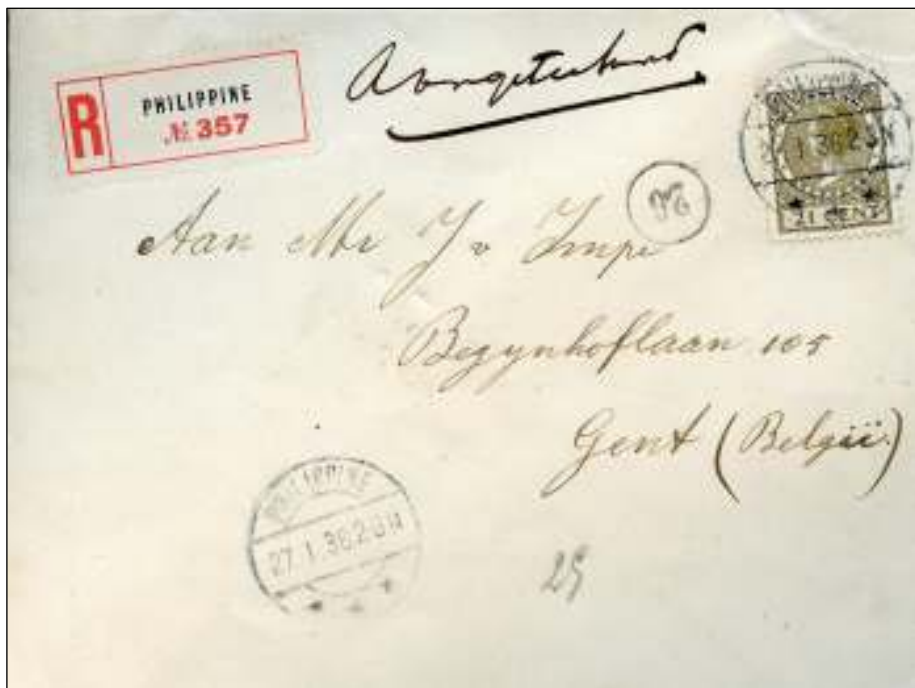 R
PHILIPPINE
№ 357
Aangetekend
21 CENT
Aan Mr J v Impe
Begynhoflaan 105
Gent (België)
PHILIPPINE
27.1.36.2 0 N